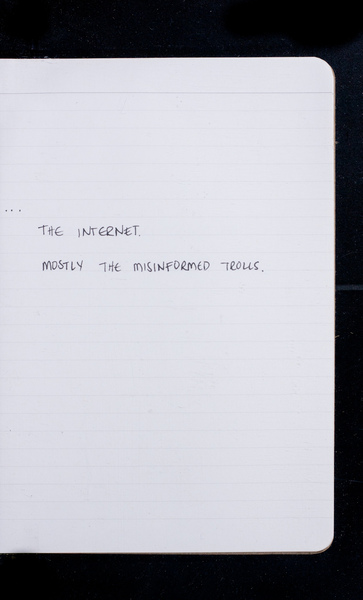 ...
THE INTERNET.
MOSTLY THE MISINFORMED TROLLS.